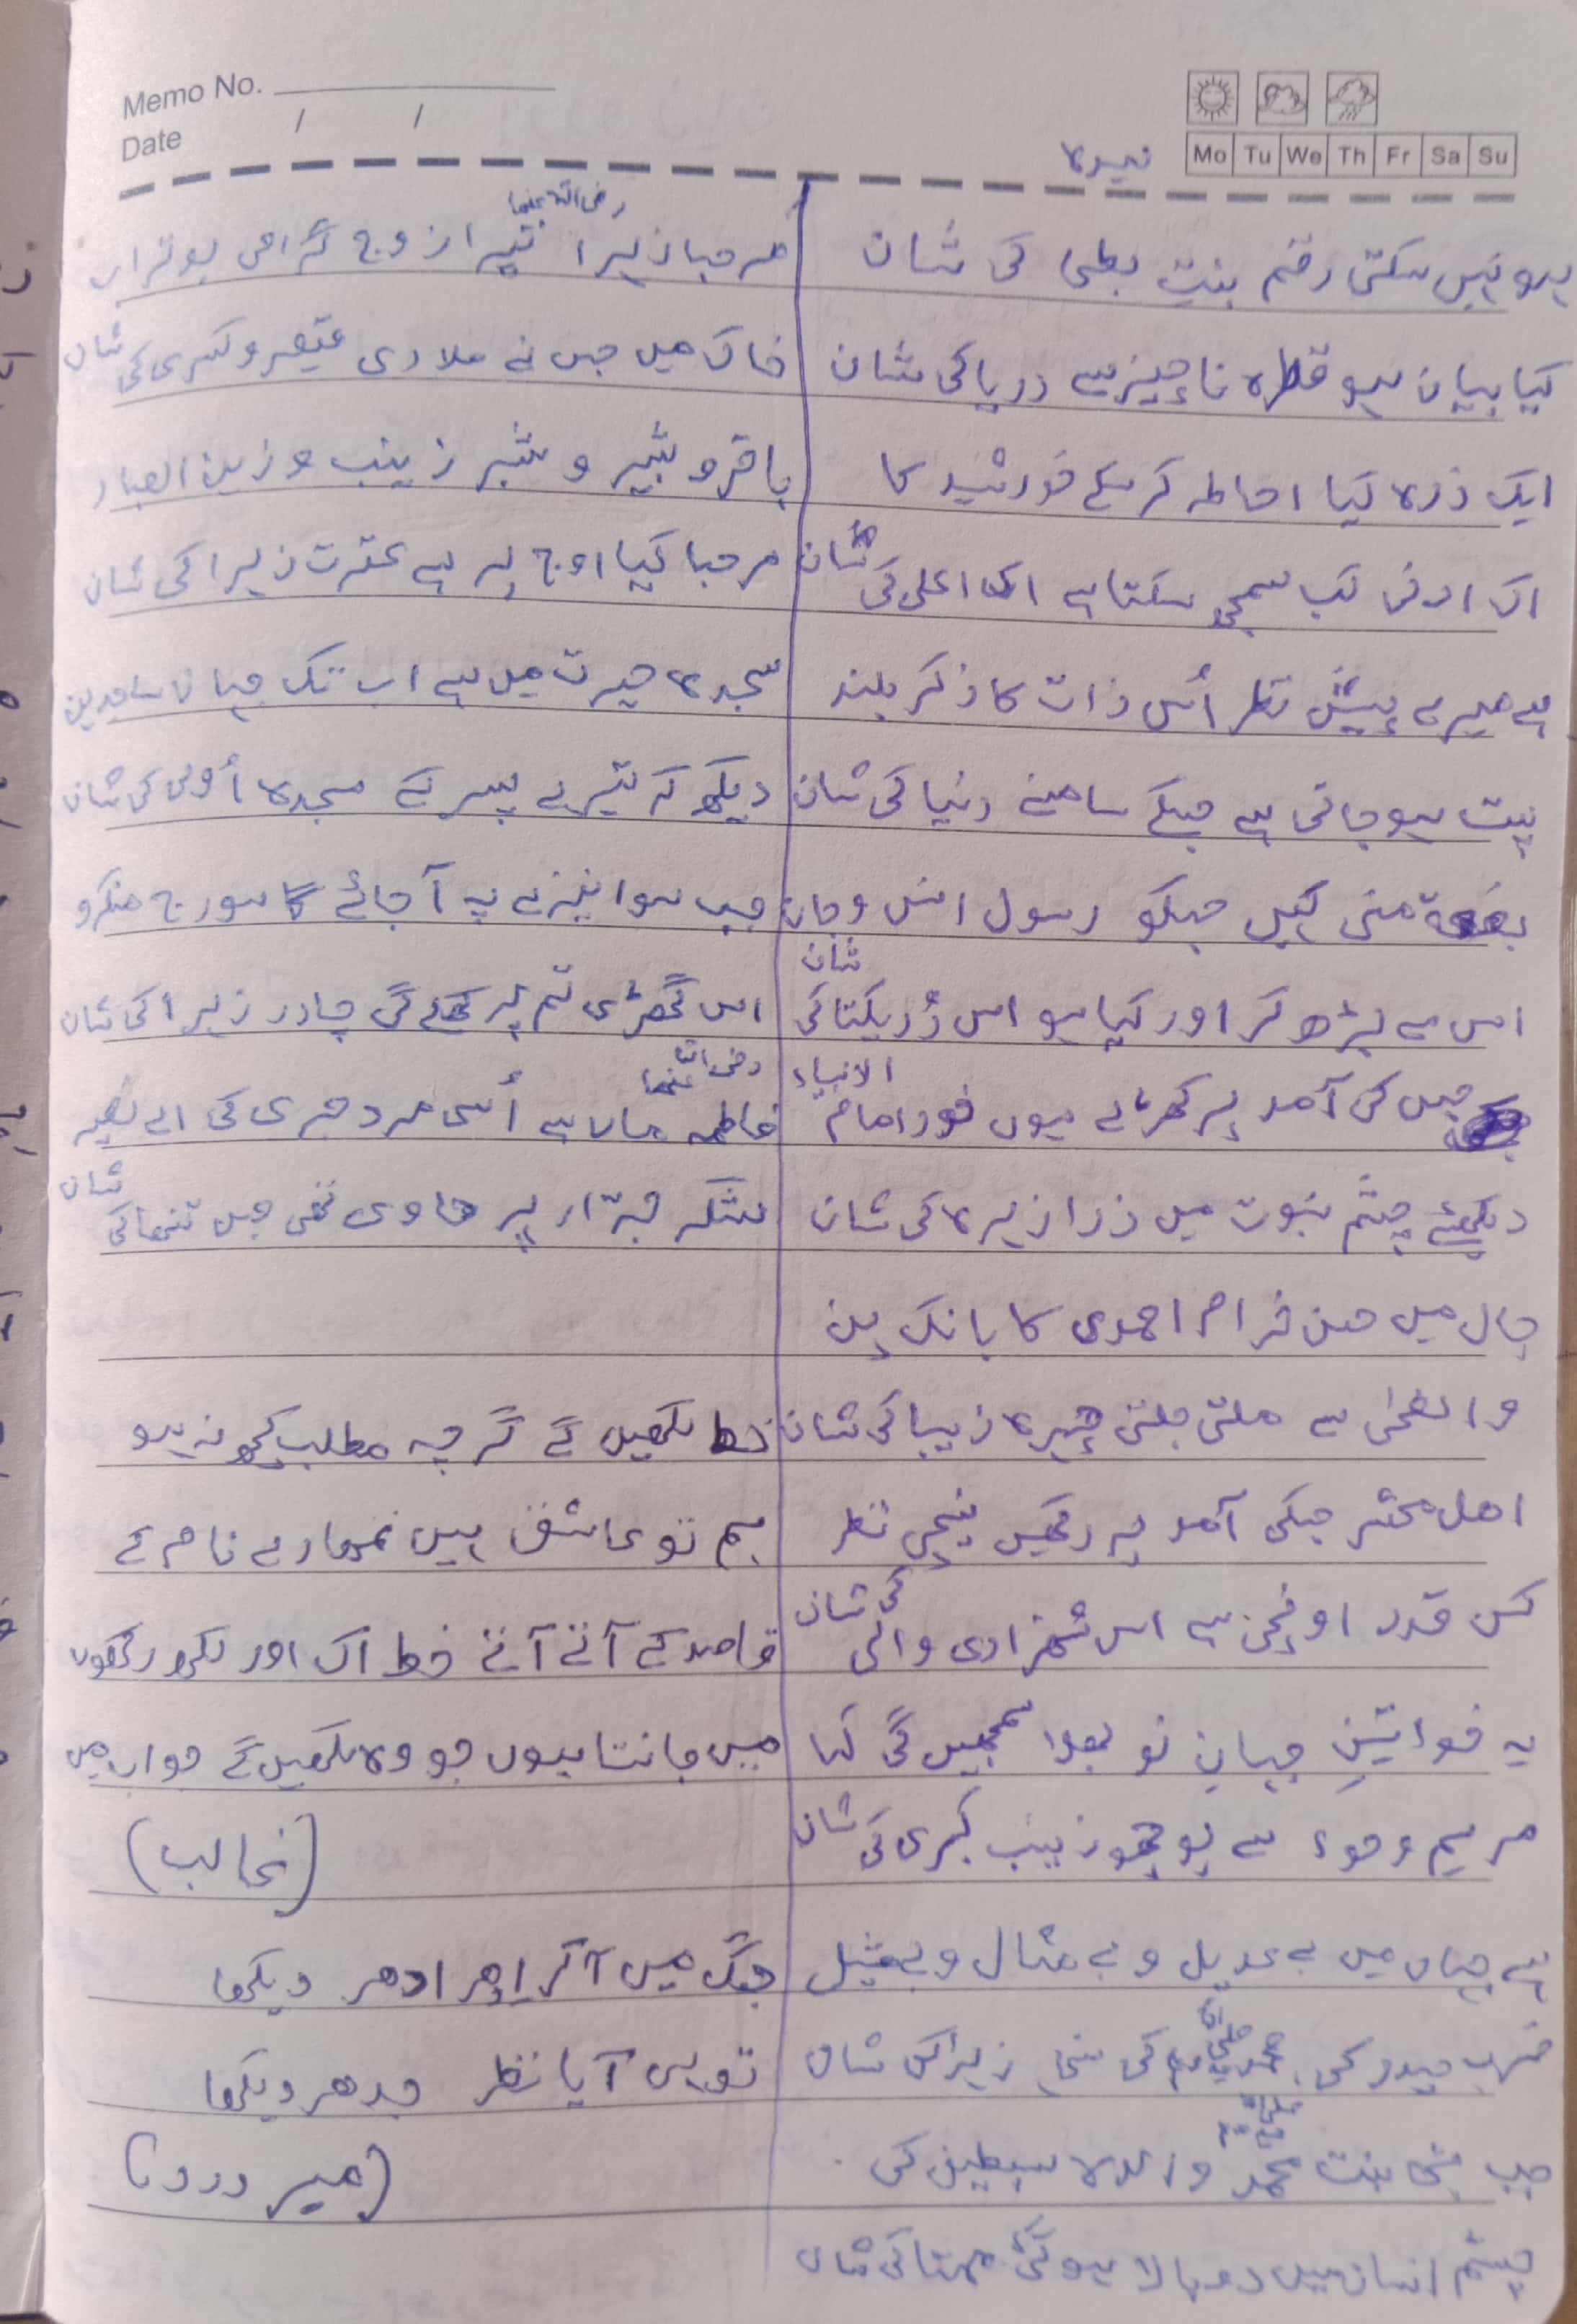 Memo No.
Date / /
Mo Tu We Th Fr Sa Su
قصیدہ
ہو نہیں سکتی رقم بنتِ بطحی کی شان
کیا بیان ہو قطرہ ناچیز سے دریا کی شان
ایک ذرہ کیا احاطہ کر سکے خورشید کا
اک ادنی کب سمجھ سکتا ہے اک اعلی کی شان
ہے میرے پیشِ نظر اُس ذات کا ذکر بلند
پست ہو جاتی ہے جسکے سامنے دنیا کی شان
بضعۃ منی کہیں جسکو رسول انس و جان
اس سے بڑھ کر اور کیا ہو اس دُر یکتا کی شان
جس کی آمد پر کھڑے ہوں خود امام الانبیاء
دیکھئے چشم نبوت میں ذرا زہرہ کی شان
چال میں حسن خرام احمدی کا بانک پن
والضحی سے ملتی جلتی چہرہ زیبا کی شان
اهل محشر جسکی آمد پر رکھیں نیچی نظر
کس قدر اونچی ہے اس شہزادی والی کی شان
یہ خواتینِ جہان تو بھلا سمجھیں گی کیا
مریم و حوا سے پوچھو زینب کبری کی شان
ہے جہاں میں بے عدیل و بے مثال و بے مثیل
ضرب حیدر کی محمد کی زہرا کی شان
جب بنت محمد والدہ سبطین کی
چشم انسان میں دوبالا ہو گئی ممتا کی شان
مرحبا زہرا رضی اللہ عنہا تیرا زوج گرامی بوتراب
خاک میں جس نے ملا دی قیصر و کسری کی شان
باقر و شبیر و شبر زینب و زین العباد
مرحبا کیا اوج پر ہے عترت زہرا کی شان
سجدہ حیرت میں ہے اب تک جہان ساجدین
دیکھ کہ تیرے پسر کے سجدہ أولی کی شان
جب سوا نیزے پہ آ جائے گا سورج منکرو
اس گھڑی تم پر کھلے گی چادر زہرا کی شان
فاطمہ رضی اللہ عنہا ماں ہے أسی مرد جری کی اے نصیر
لشکر جرّار پر حاوی تھی جس تنہا کی شان
خط لکھیں گے گرچہ مطلب کچھ نہ ہو
ہم تو عاشق ہیں تمہارے نام کے
قاصد کے آتے آتے خط اک اور لکھ رکھوں
میں جانتا ہوں جو وہ لکھیں گے جواب میں
(غالب)
جگ میں آکر اِدھر ادھر دیکھا
تو ہی آیا نظر جدھر دیکھا
(میر درد)